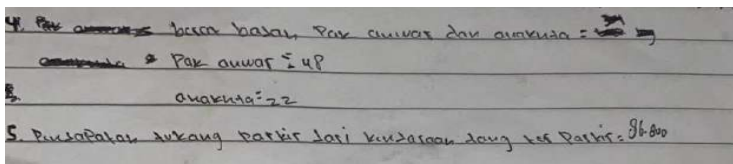 4. besar badan Pak anwar dan anaknya =
Pak anwar = 48
anaknya = 22
5. Pendapatan tukang parkir dari kendaraan yang ter parkir = 96.000